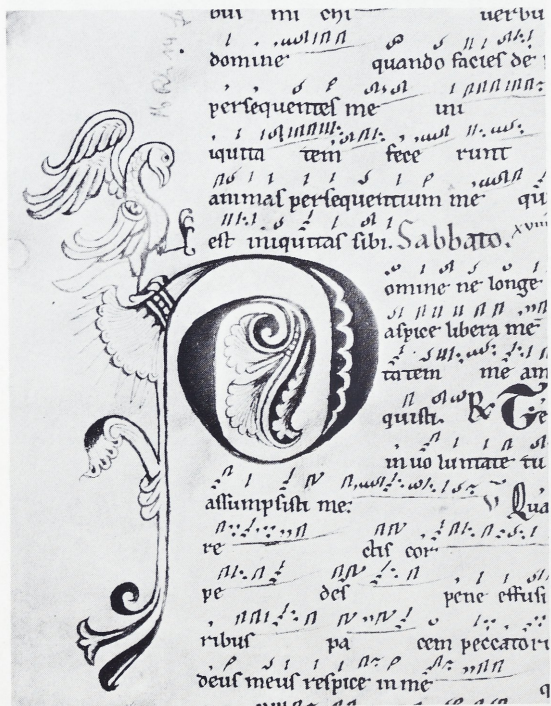 bui mi chi uerbu
domine quando facies de
persequentes me ini
iquita tem fece runt
animas persequentium me qu
est iniquitas sibi. Sabbato. xviii
Domine ne longe
aspice libera me
tatem me am
quisti. R Te
in uo luntate tu
assumpsisti me: V Qua
re ctis cor
pe des pene effusi
ribus pa cem peccatori
deus meus respice in me q